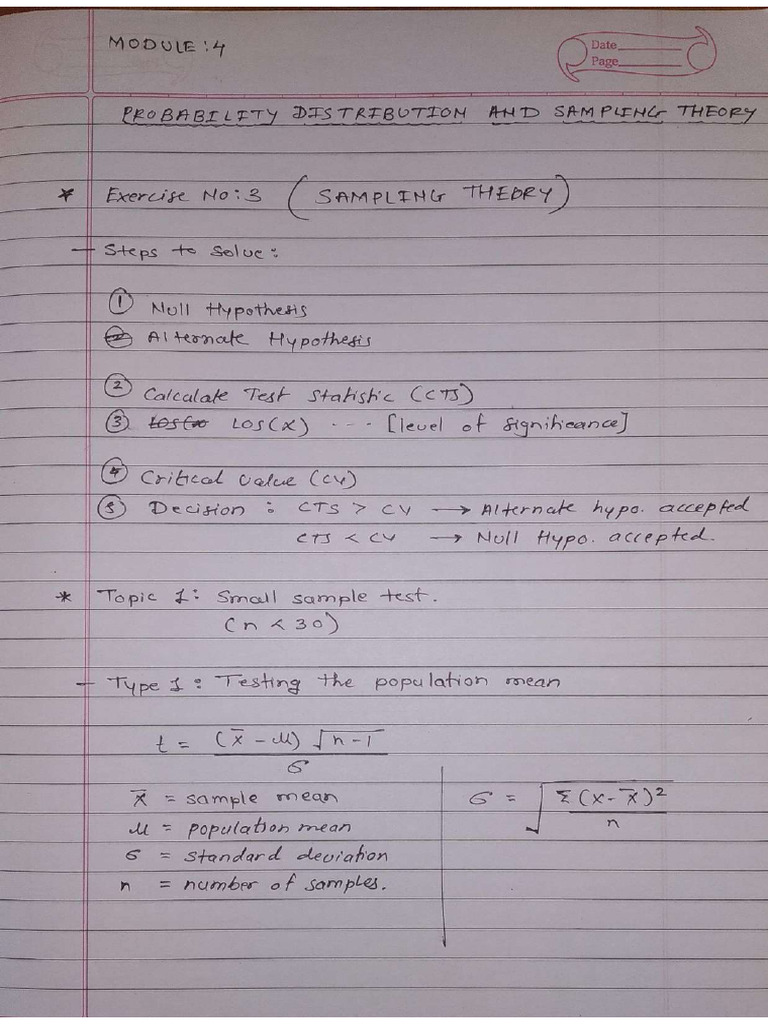 MODULE : 4
Date
Page
PROBABILITY DISTRIBUTION AND SAMPLING THEORY
* Exercise No : 3 ( SAMPLING THEORY )
— Steps to solve :
① Null Hypothesis
Alternate Hypothesis
② Calculate Test Statistic (CTS)
③ LOS(α) --- [level of significance]
④ Critical value (CV)
⑤ Decision : CTS > CV → Alternate hypo. accepted
CTS < CV → Null Hypo. accepted.
* Topic 1 : Small sample test.
(n < 30)
— Type 1 : Testing the population mean
t = (x̄ - μ) √n-1 / σ
x̄ = sample mean
μ = population mean
σ = standard deviation
n = number of samples.
σ = √Σ(x-x̄)² / n